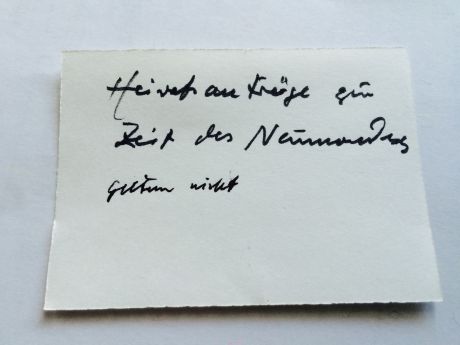 Heiratsanträge zur
Zeit des Neumondes
gelten nicht